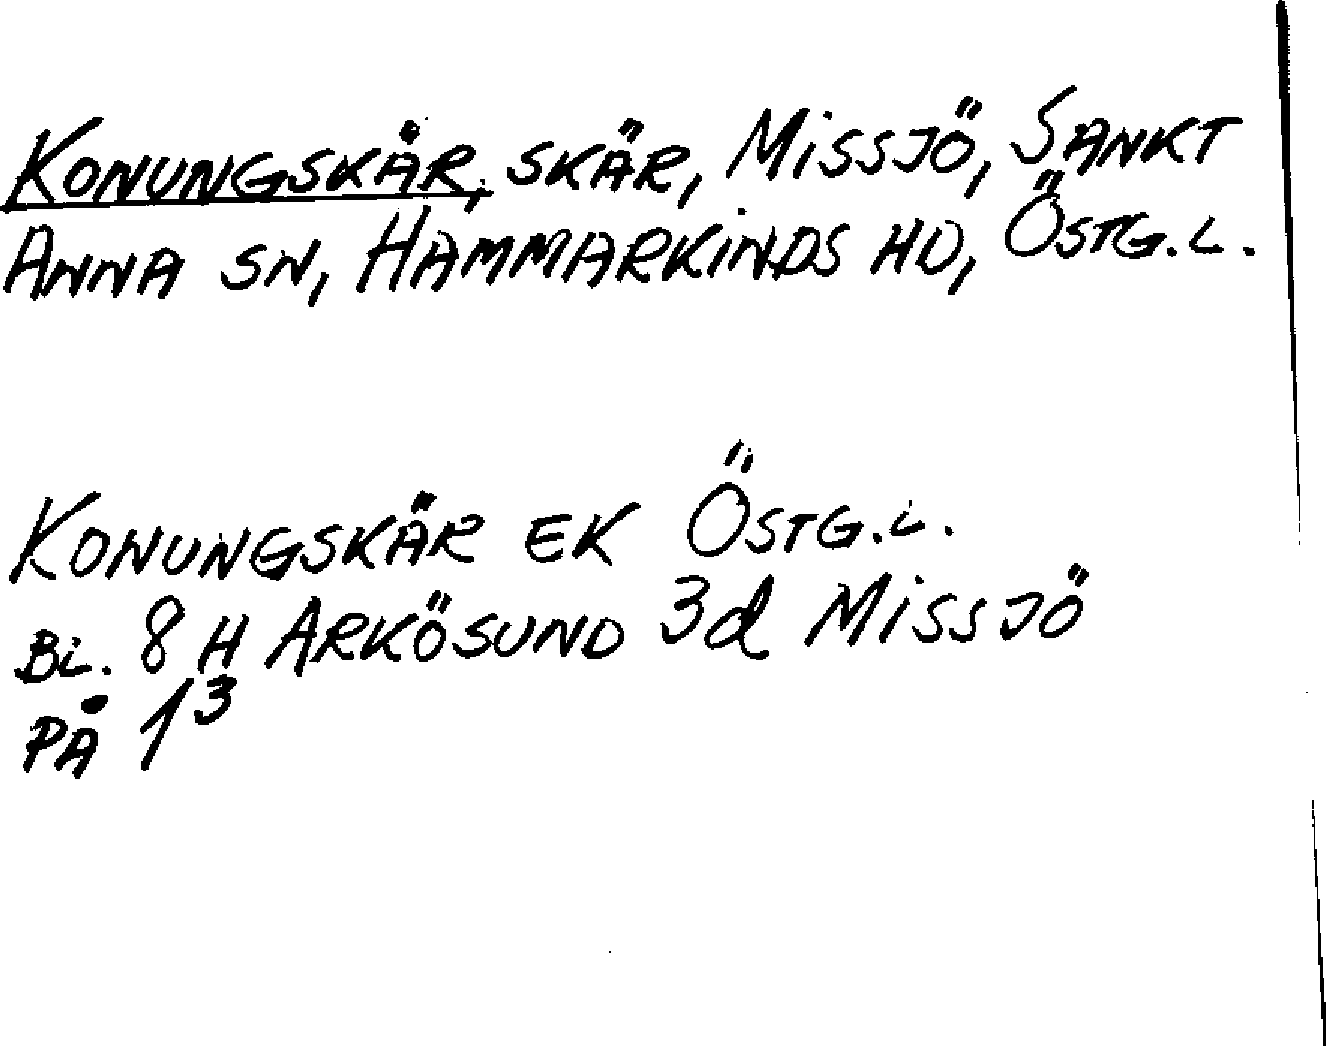 KONUNGSKÄR, SKÄR, MISSJÖ, SANKT
ANNA SN, HAMMARKINDS HD, ÖSTG.L.
KONUNGSKÄR EK ÖSTG.L.
BL. 8 H ARKÖSUND 3d MISSJÖ
PÅ 1³